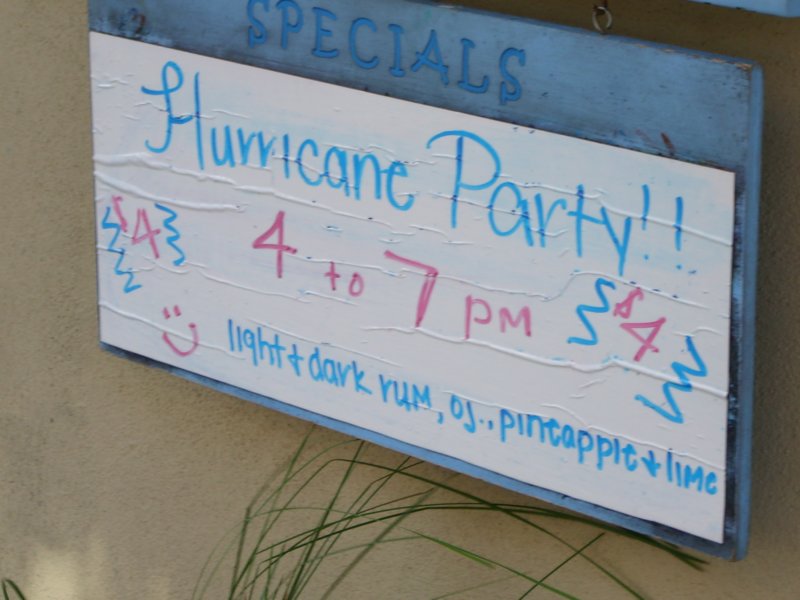 SPECIALS
Hurricane Party!!
$4 4 to 7 pm $4
light + dark rum, oj., pineapple + lime